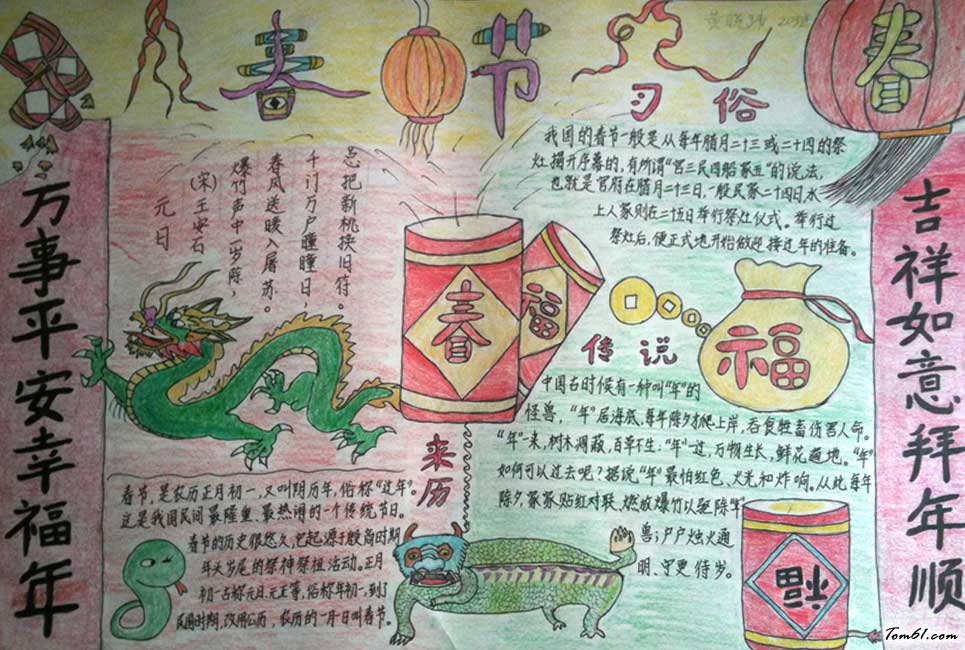 春节
习俗
春
万事平安幸福年
吉祥如意拜年顺
元日
(宋)王安石
爆竹声中一岁陈,
春风送暖入屠苏。
千门万户瞳瞳日,
总把新桃换旧符。
我国的春节一般是从每年腊月二十三或二十四的祭
灶揭开序幕的,有所谓“官三民四船家五”的说法,
也就是官府在腊月二十三日,一般民家二十四日水
上人家则在二十五日举行祭灶仪式。举行过
祭灶后,便正式地开始做迎接过年的准备。
春
福
福
传说
中国古时候有一种叫“年”的
怪兽,“年”居海底,每年除夕才爬上岸,吞食牲畜伤害人命。
“年”一来,树木凋蔽,百草不生;“年”一过,万物生长,鲜花遍地。“年”
如何可以过去呢?据说“年”最怕红色、火光和炸响。从此每年
除夕家家贴红对联、燃放爆竹以驱除“年”
兽;户户烛火通
明、守更待岁。
来历
春节,是农历正月初一,又叫阴历年,俗称“过年”。
这是我国民间最隆重、最热闹的一个传统节日。
春节的历史很悠久,它起源于殷商时期
年头岁尾的祭神祭祖活动。正月
初一古称元日、元正等,俗称年初一,到了
民国时期,改用公历,农历的一月一日叫春节。
福
Tom61.com